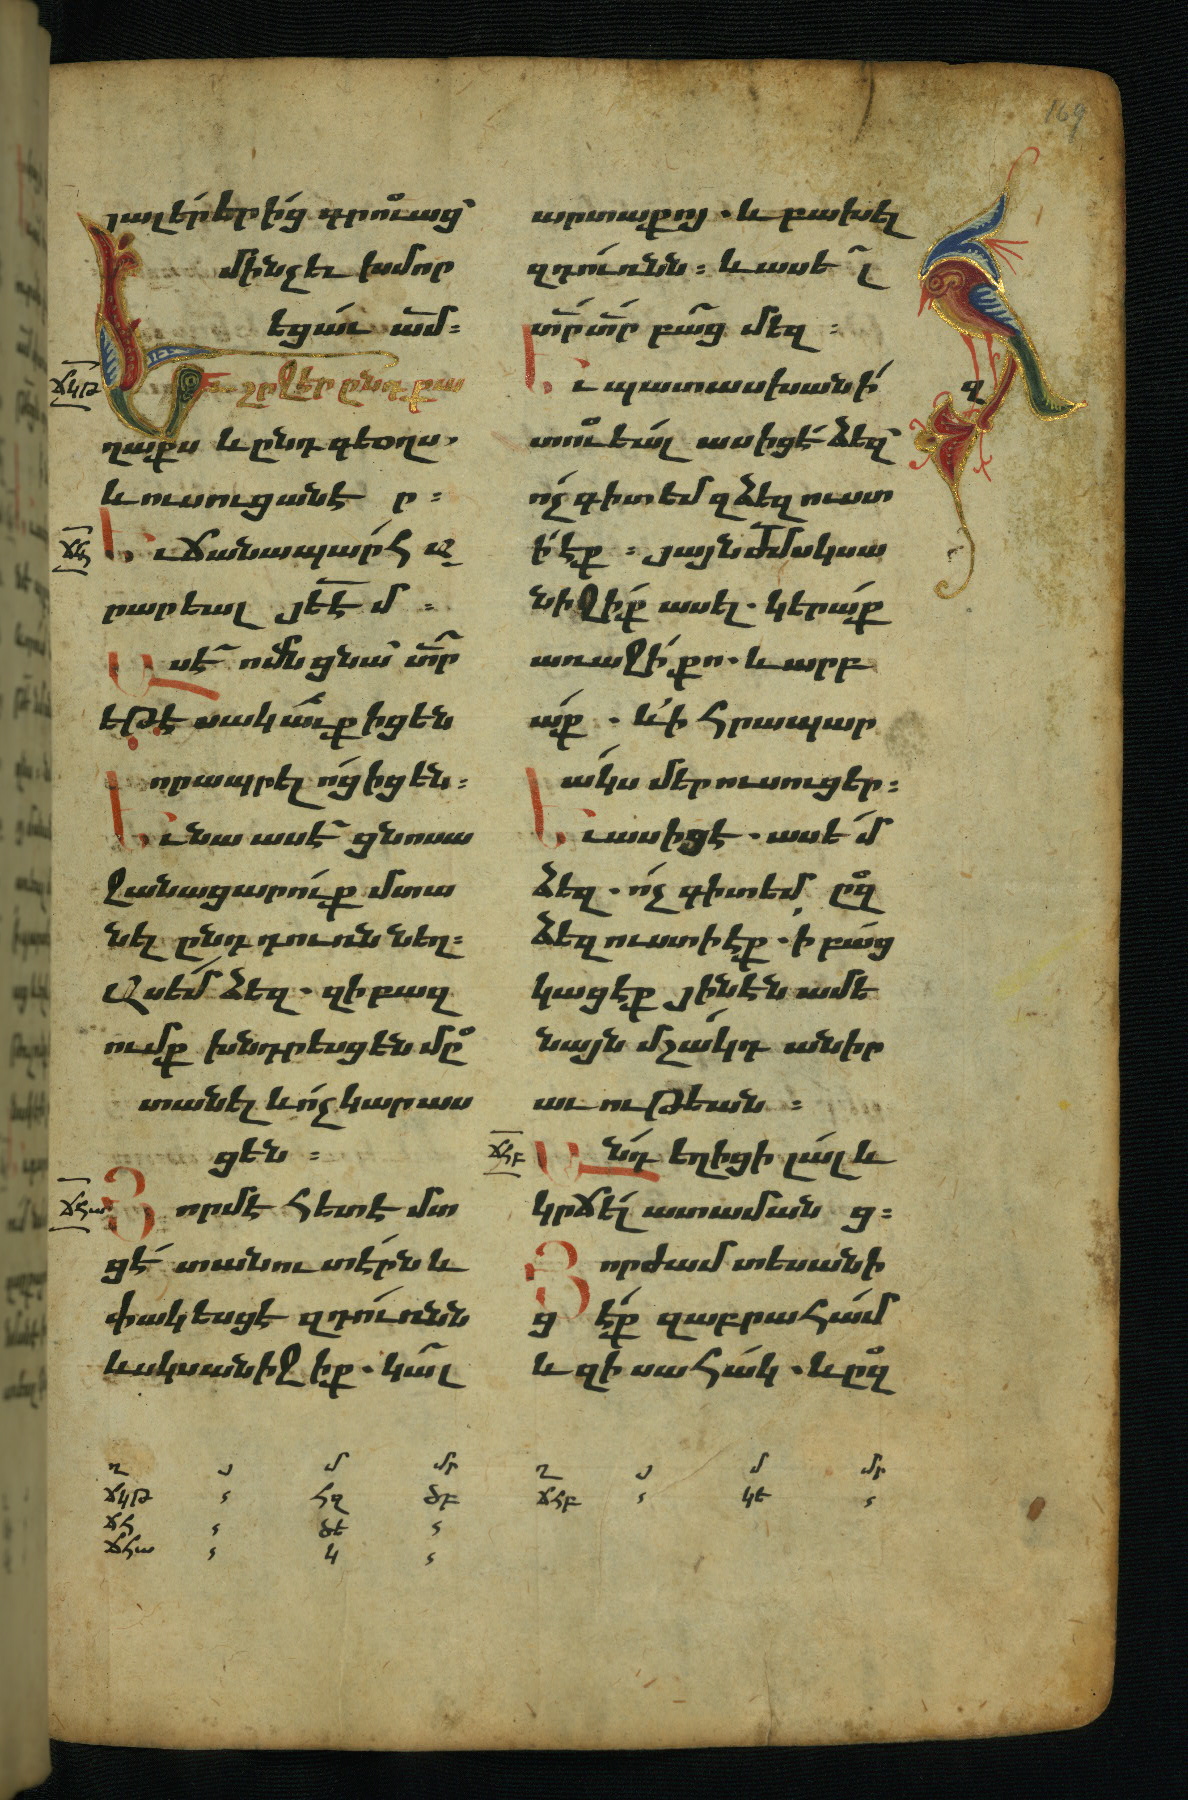 169
յալեր երից գրուաց
մինչեւ խմոր
եցաւ ամ։
ՃԿԹ
Եւ շրջէր ընդ քա
ղաքս և ընդ գեօղս,
և ուսուցանէ ր։
ՃՀ
Եւ ճանապարհ զ
րարեալ յԵԷմ։
Ասէ ոմն ցնա տր
եթէ սակաւք իցեն
որ ապրել ոց իցեն։
Եւ նա ասէ ցնոսա
ջանացարուք մտա
նել ընդ դուռն նեղ։
Ասեմ ձեզ. զի բազ
ումք խնդրեսցեն մը
տանել և ոչ կարաս
ցեն։
ՃՀԱ
Յորմէ հետէ մտ
ցէ տանուտէրն և
փակեսցէ զդուռնն
և սկսանիջիք. կալ
արտաքոյ. և բախել
զդուռնն։ և ասել
տր տր բաց մեզ։
Եւ պատասխանի
զ
տուեալ ասիցէ ձեզ
ոչ գիտեմ զձեզ ուստ
ի էք։ յայնժմ սկսա
նիջիք ասել. կերաք
առաջի քո. և արբ
աք. և ի հրապար
ակս մեր ուսուցեր։
Եւ ասիցէ. ասեմ
ձեզ. ոչ գիտեմ ըզ
ձեզ ուստի էք. ի բաց
կացէք յինէն ամե
նայն մշակդ անիր
աւութեան։
ՃՀԲ
Անդ եղիցի լալ և
կրճել ատաման ց։
Յորժամ տեսանի
ցէք զաբրահամ
և զիսահակ. և ըզ
Ղ Յ Մ Մր
ՃԿԹ ՀԶ ԾԲ
ՃՀ ԾԵ
ՃՀԱ Կ
Ղ Յ Մ Մր
ՃՀԲ ԿԵ